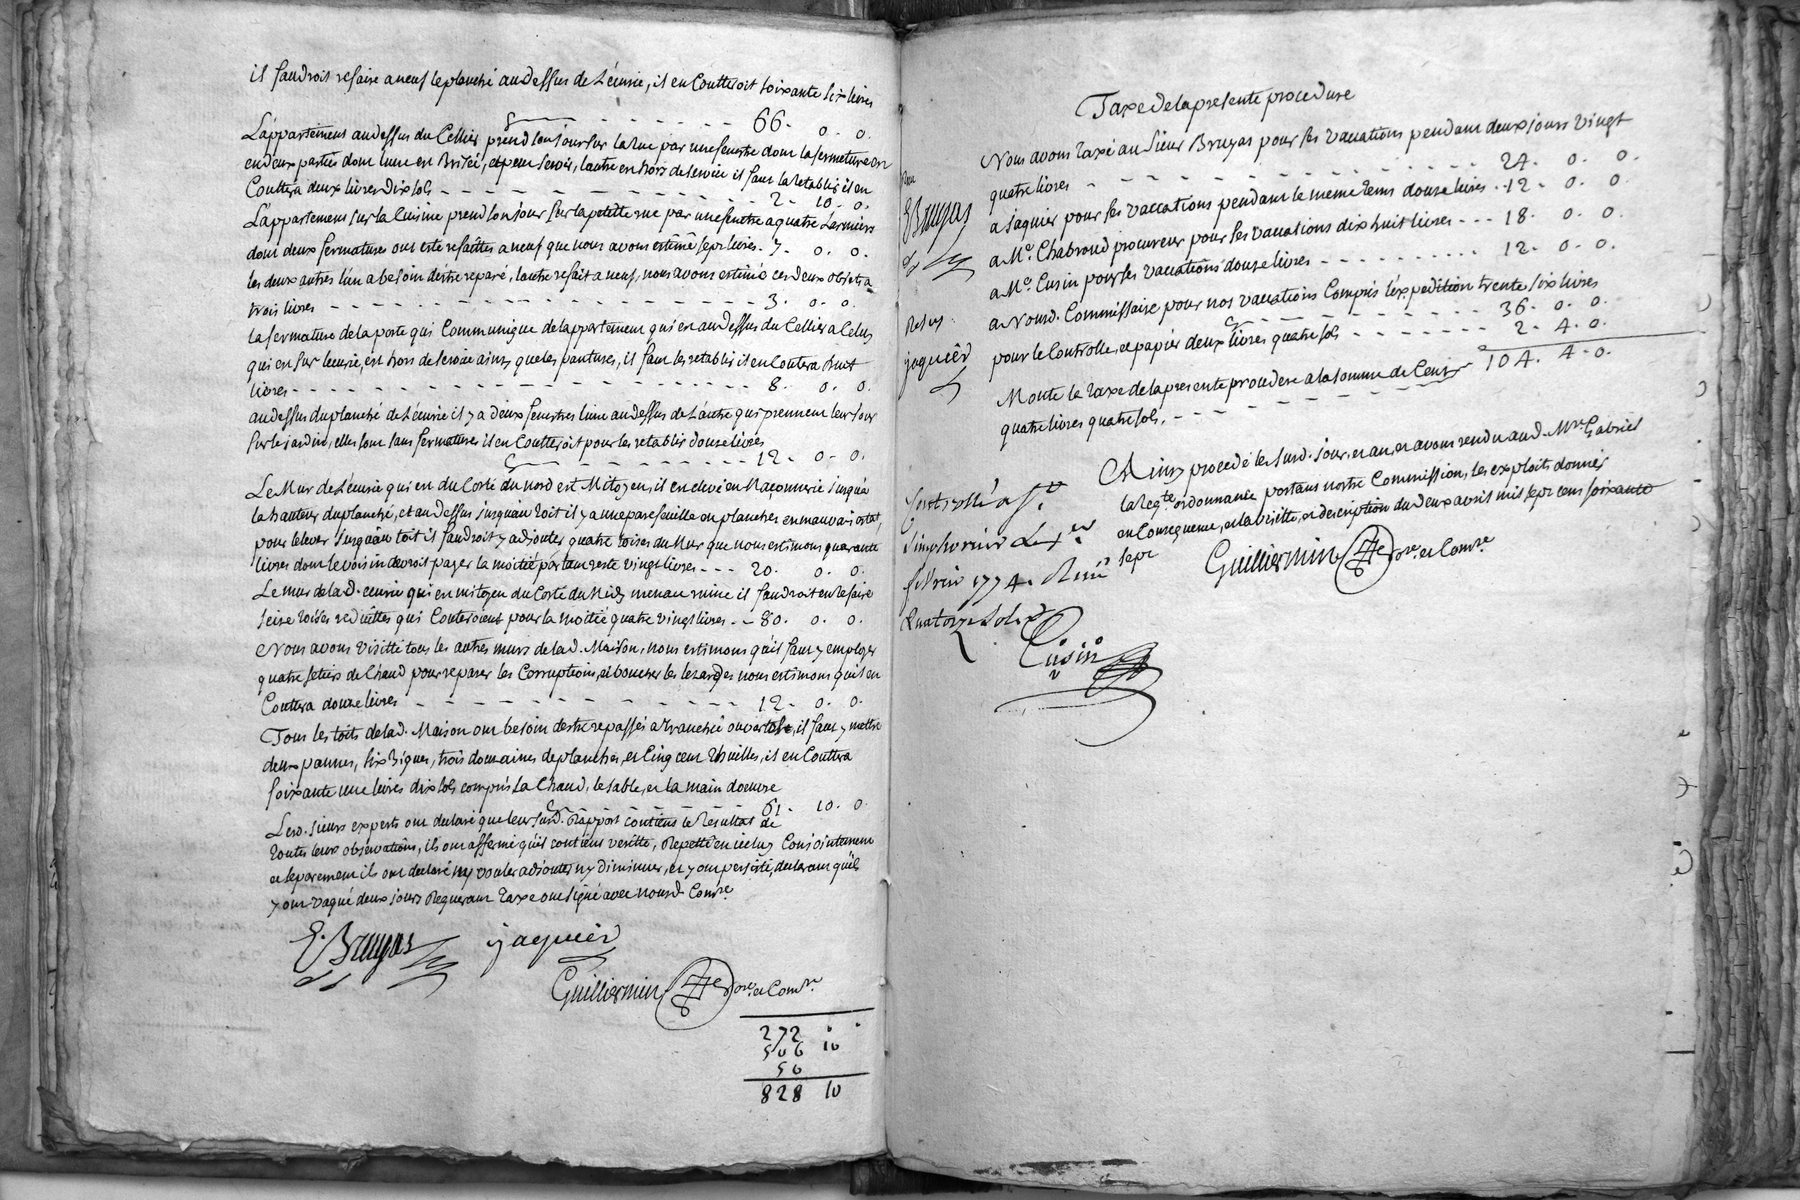 il faudroit refaire a neuf le planché audessus de Lécurie, il en Coutteroit soixante six livres
66. 0. 0.
L'appartement audessus du Cellier prend son Jour sur la rue par une fenestre dont la fermeture est
en deux parties dont lune est Brisée, et peu servir, lautre est hors de servir il faut la retablir il en
Couttera deux livres dix sols 2. 10. 0.
L'appartement sur la Cuisine prend son Jour sur la petitte rue par une fenetre a quatre
dont deux fermatures ont esté refaittes a neuf que nous avons estimé sept livres. 7. 0. 0.
les deux autres lun a besoin destre reparé, lautre refait a neuf, nous avons estimé ces deux objets a
trois livres 3. 0. 0.
la fermature de la porte qui Communique de lappartement qui est audessus du Cellier a Celuy
qui est sur lecurie, est hors de servir ainsy que les pantures, il faut les retablir il en Coutera huit
livres 8. 0. 0.
audessus du planché de Lécurie il y a deux fenestres lune audessus de Lautre qui prennent leur Jour
sur le jardin, elles sont sans fermatures il en Coutteroit pour les retablir douze livres
12. 0. 0.
Le Mur de Lécurie qui est du Coté du nord est Mitoyen, il est elevé en Maçonnerie Jusqu'a
la hauteur du planché, et audessus jusquau toit il y a une parefeuille en planches en mauvais etat
pour lelever Jusquau toit il faudroit y adjouter quatre toises du Mur que nous estimons quarante
livres dont le voisin devroit payer la moitié partant reste vingt livres 20. 0. 0.
Le mur de lad. ecurie qui est mitoyen du Coté du Midy menace ruine il faudroit en refaire
seize toises reduittes qui Couteroient pour la moitié quatre vingt livres 80. 0. 0.
Nous avons visitté tous les autres murs de lad. Maison, nous estimons qu'il faut y employer
quatre setiers de Chaud pour reparer les Corruptions, et boucher les lezardes nous estimons qu'il en
Couttera douze livres 12. 0. 0.
Tous les toits de lad. Maison ont besoin destre repassés a tranchée ouverte, il faut y mettre
deux pannes, six Riques, trois douzaines de planches, et Cinq cent thuilles, il en Couttera
soixante une livres dix sols compris la Chaud, le sable, et la main doeuvre
61. 10. 0.
Lesd. sieurs experts ont declaré que leur susd. Rapport contient le Resultat de
toutes leurs observations, ils ont affermé qu'il contient verité, Repetté en icelluy Conjointement
et separement ils ont declaré ny vouloir adjouter ny diminuer, et y ont persisté, declarant qu'ils
y ont vaqué deux jours Requerant taxe ont signé avec nousd. Comre.
E. Bruyas jaquier
Guilliermin ore. et Comre.
272 . .
506 10
50
828 10
Taxe de la presente procedure
Nous avons Taxé au Sieur Bruyas pour ses vacations pendant deux jours vingt
quatre livres 24. 0. 0.
a jaquier pour ses vaccations pendant le meme tems douze livres 12. 0. 0.
a Me. Chabroud procureur pour ses vacations dix huit livres 18. 0. 0.
a Me. Cusin pour ses vaccations douze livres 12. 0. 0.
a Nousd. Commissaire pour nos vacations Compris l'expedition trente six livres
36. 0. 0.
pour le Controlle, et papier deux livres quatre sols 2. 4. 0.
Monte la Taxe de la presente procedure a la somme de Cent 104. 4. 0.
quatre livres quatre sols.
Ainsy procedé les susd. jour, et an, et avons rendu aud. Mre. Gabriel
la Reqte. ordonnance portant nostre Commission, les exploits donnés
en Consequence, et la visitte, et description du deux avril mil sept cent soixante
sept
Guilliermin ore. et Comre.
E Bruyas
Resus
jaquier
Controllé a St
Simphorien
fevrier 1774. Reçu
quatorze sols
Cusin